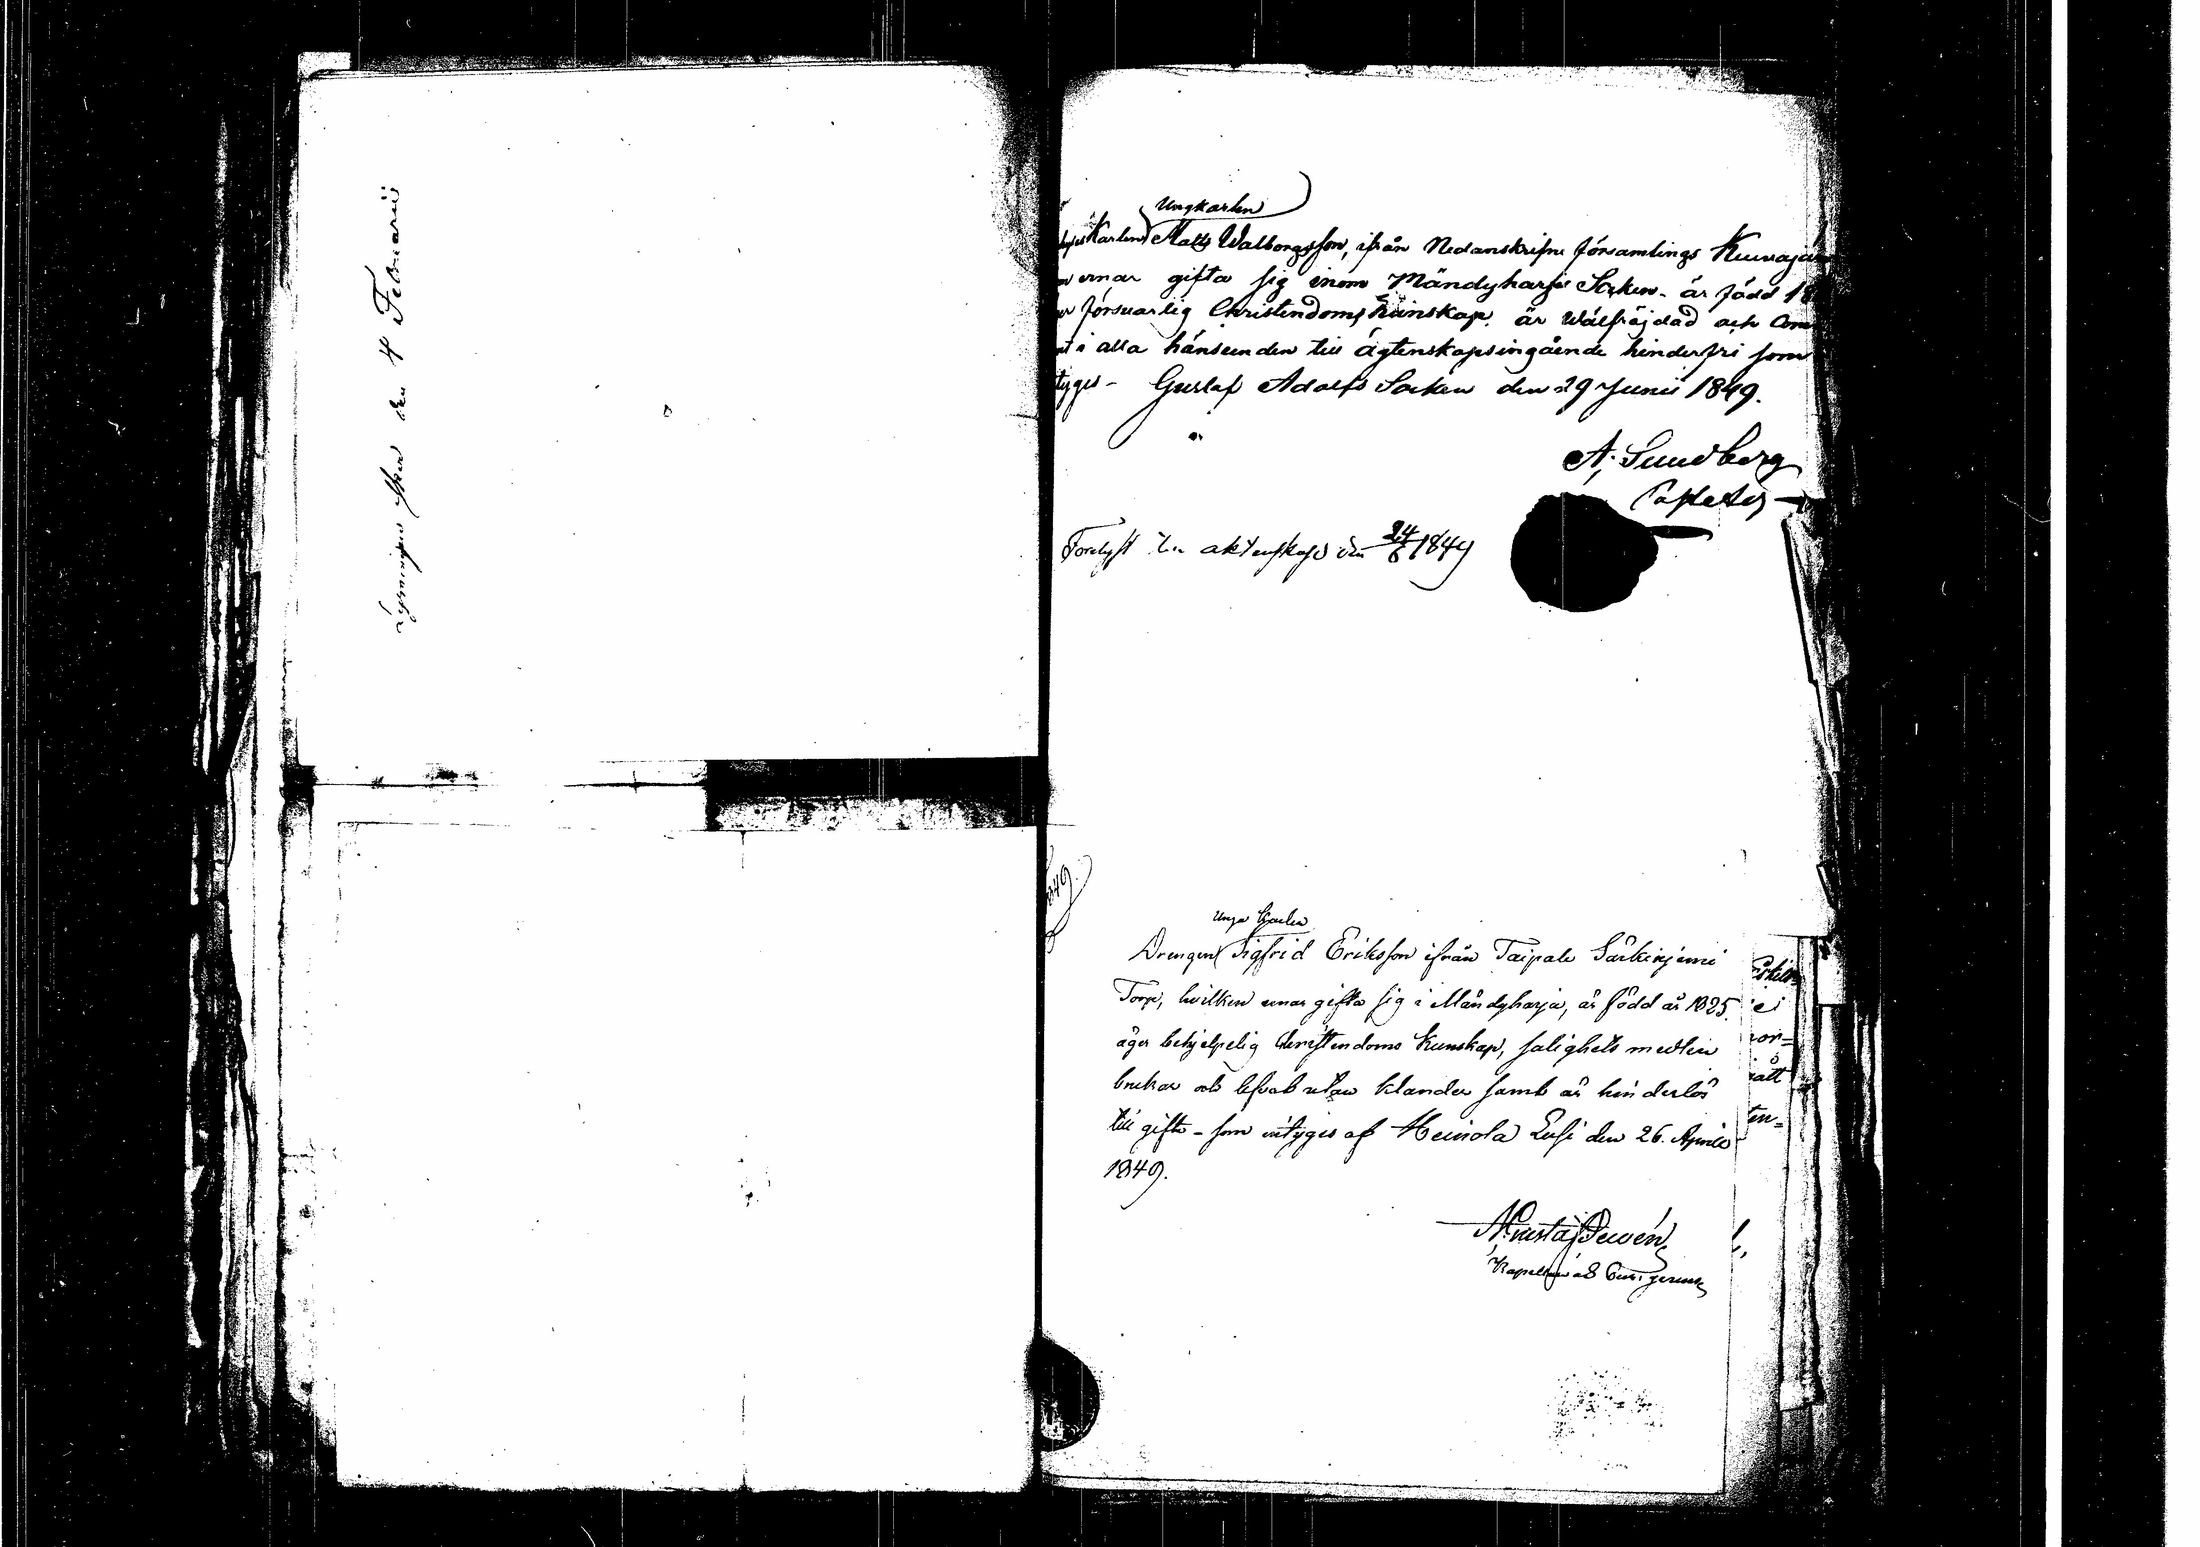 Lysningen sker den 4 Februarii
Ungkarlen
Karlen Matts Walborgsson, ifrån Nedanskrifne församlings Kuivajär
ernar gifta sig inom Mändyharju Socken - är född 18
försvarlig Christendoms kunskap, är wälfräjdad och Com
i alla hänseenden till ägtenskapsingående hinderfri som
tyges - Gustaf Adolfs Socken den 29 Junii 1849.
A. Sundberg
Förelyst till äktenskap den 24/6 1849
849.
unga Karlen
Drengen Sigfrid Eriksson ifrån Taipale Särkiniemi
Torp, hvilken ernar gifta sig i Mändyharju, är född år 1825.
äger behjelpelig Christendoms Kunskap, salighets medlen
brukar och lefvat utan klander samt är hinderlös
till gifte - som intygas af Heinola Lusi den 26. Aprill
1849.